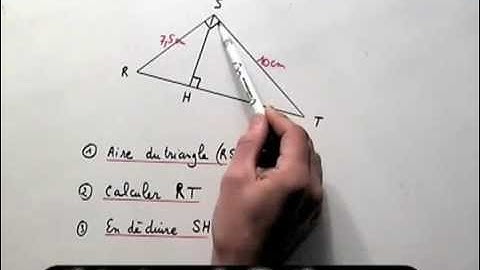 S
7,5cm
10cm
R
H
T
① Aire du triangle (RS
② Calculer RT
③ En déduire SH